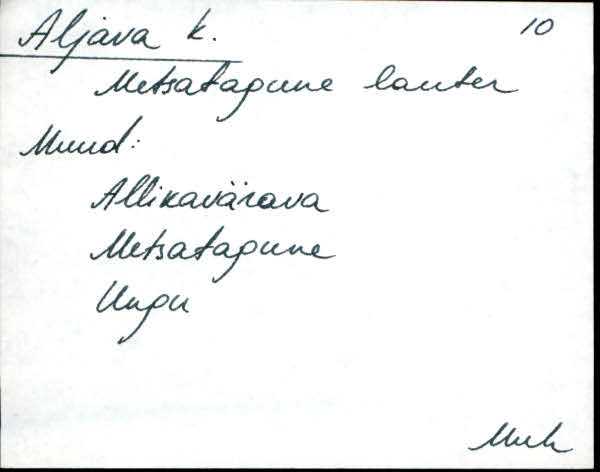 Aljava k. 10
Metsatagune lauter
Muud:
Allikavärava
Metsatagune
Ungu
Muh